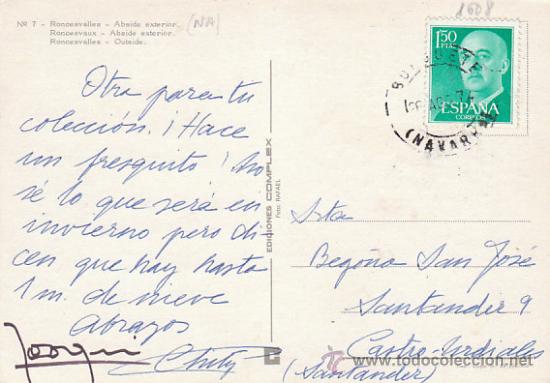 Nº 7 - Roncesvalles - Abside exterior.
Roncesvaux - Abside exterior.
Roncesvalles - Outside.
(NA)
1608
1'50
PTAS
ESPAÑA
CORREOS
(NAVARRA)
Otra para tu
colección. ¡Hace
un fresquito! No
sé lo que será en
invierno pero di-
cen que hay hasta
1 m. de nieve
Abrazos
Chity
EDICIONES COMPLEX
Foto: RAFAEL
Srta
Begoña San José
Santander 9
Castro-Urdiales
(Santander)
todocoleccion.net